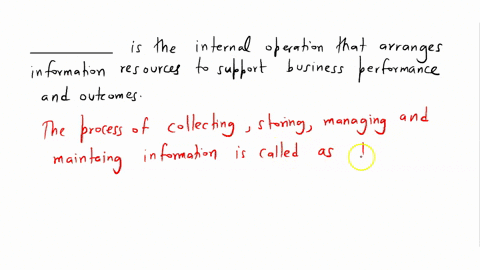 __________ is the internal operation that arranges
information resources to support business performance
and outcomes.
The process of collecting, storing, managing and
maintaing information is called as !